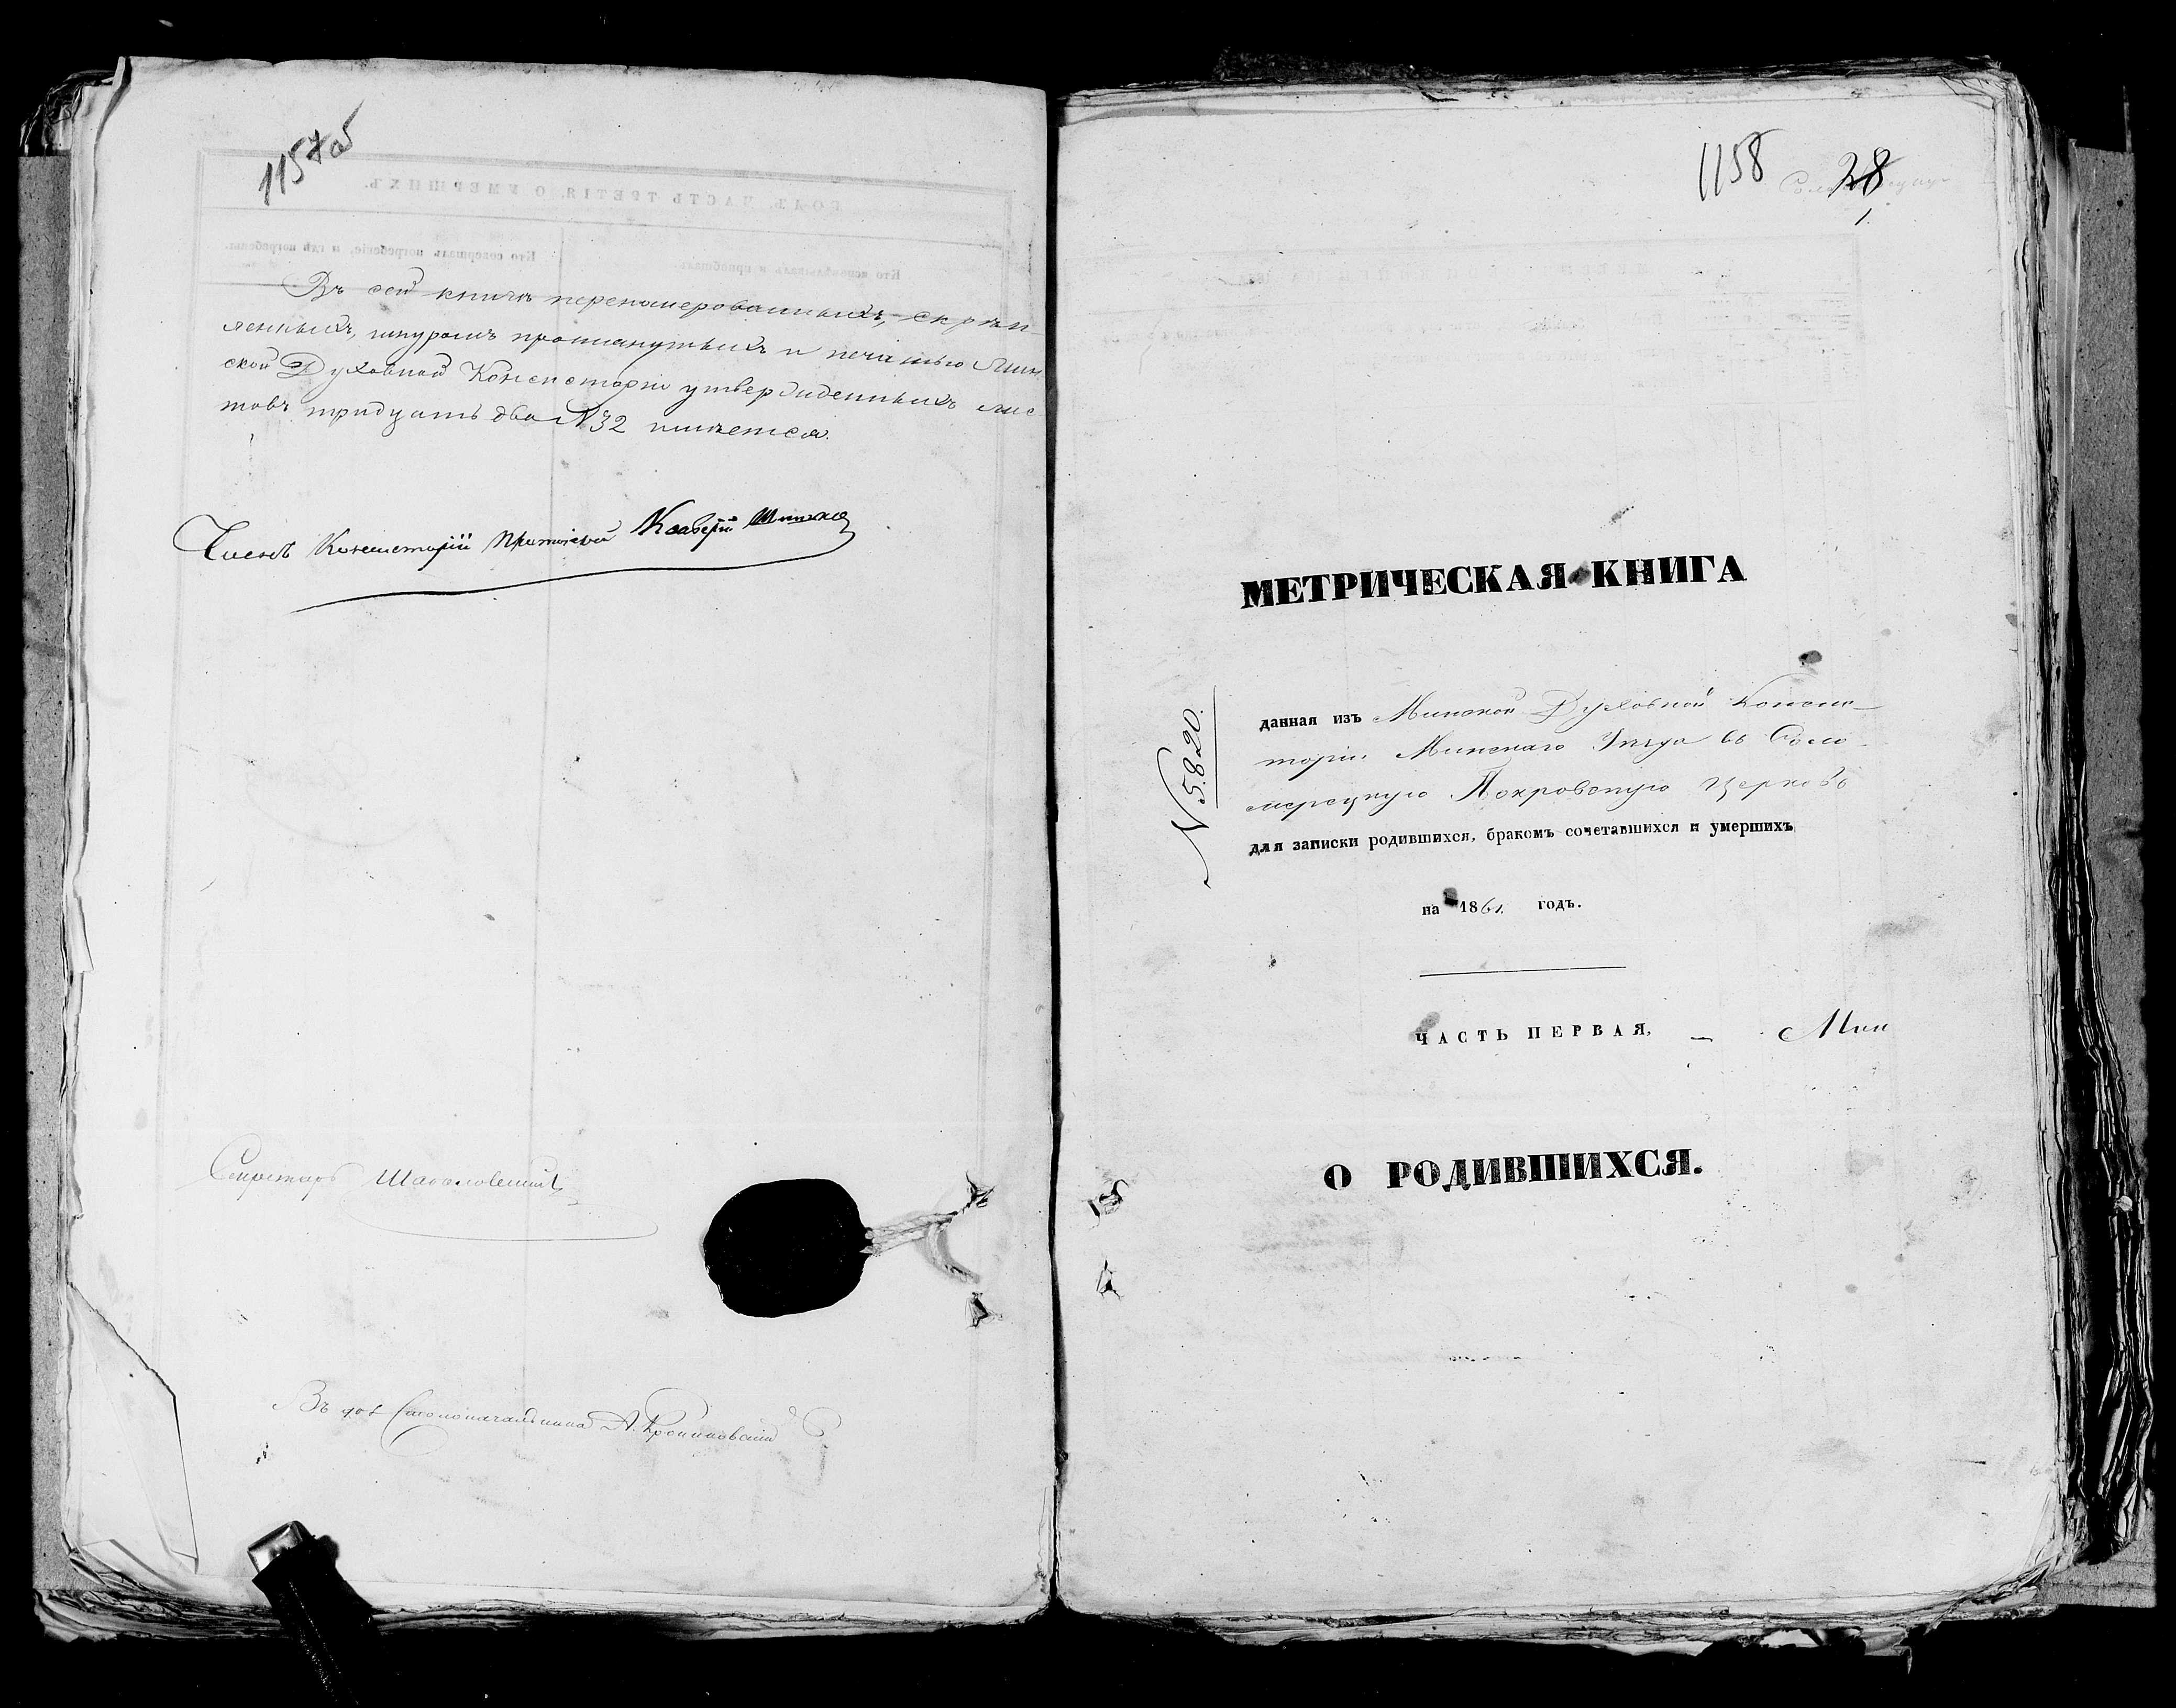 1157об
Въ сей книгѣ перенумерованныхъ, скрѣп-
ленныхъ, шнуромъ протянутыхъ и печатью Мин
ской Духовной Консисторіи утвержденныхъ лис
товъ тридцать два №32 имѣется.
Членъ Консисторіи Протоіерей
Секретарь
Столоначальника А.
1158 28
1
МЕТРИЧЕСКАЯ КНИГА
№ 5820.
данная изъ Минской Духовной Консис-
торіи Минскаго Уѣзда въ Соло-
мерецкую Покровскую Церковь
для записки родившихся, бракомъ сочетавшихся и умершихъ
на 1861 годъ.
ЧАСТЬ ПЕРВАЯ, — Мин
О РОДИВШИХСЯ.